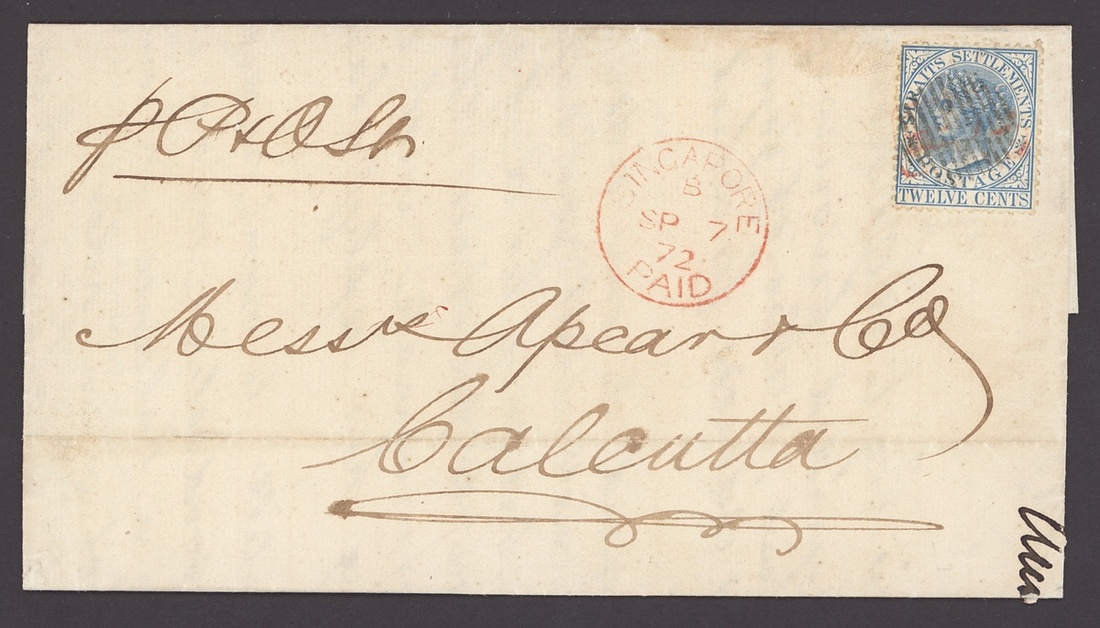 p P & O Str
STRAITS SETTLEMENTS
POSTAGE
TWELVE CENTS
SINGAPORE
B
SP 7
72
PAID
Messrs Apcar & Co
Calcutta